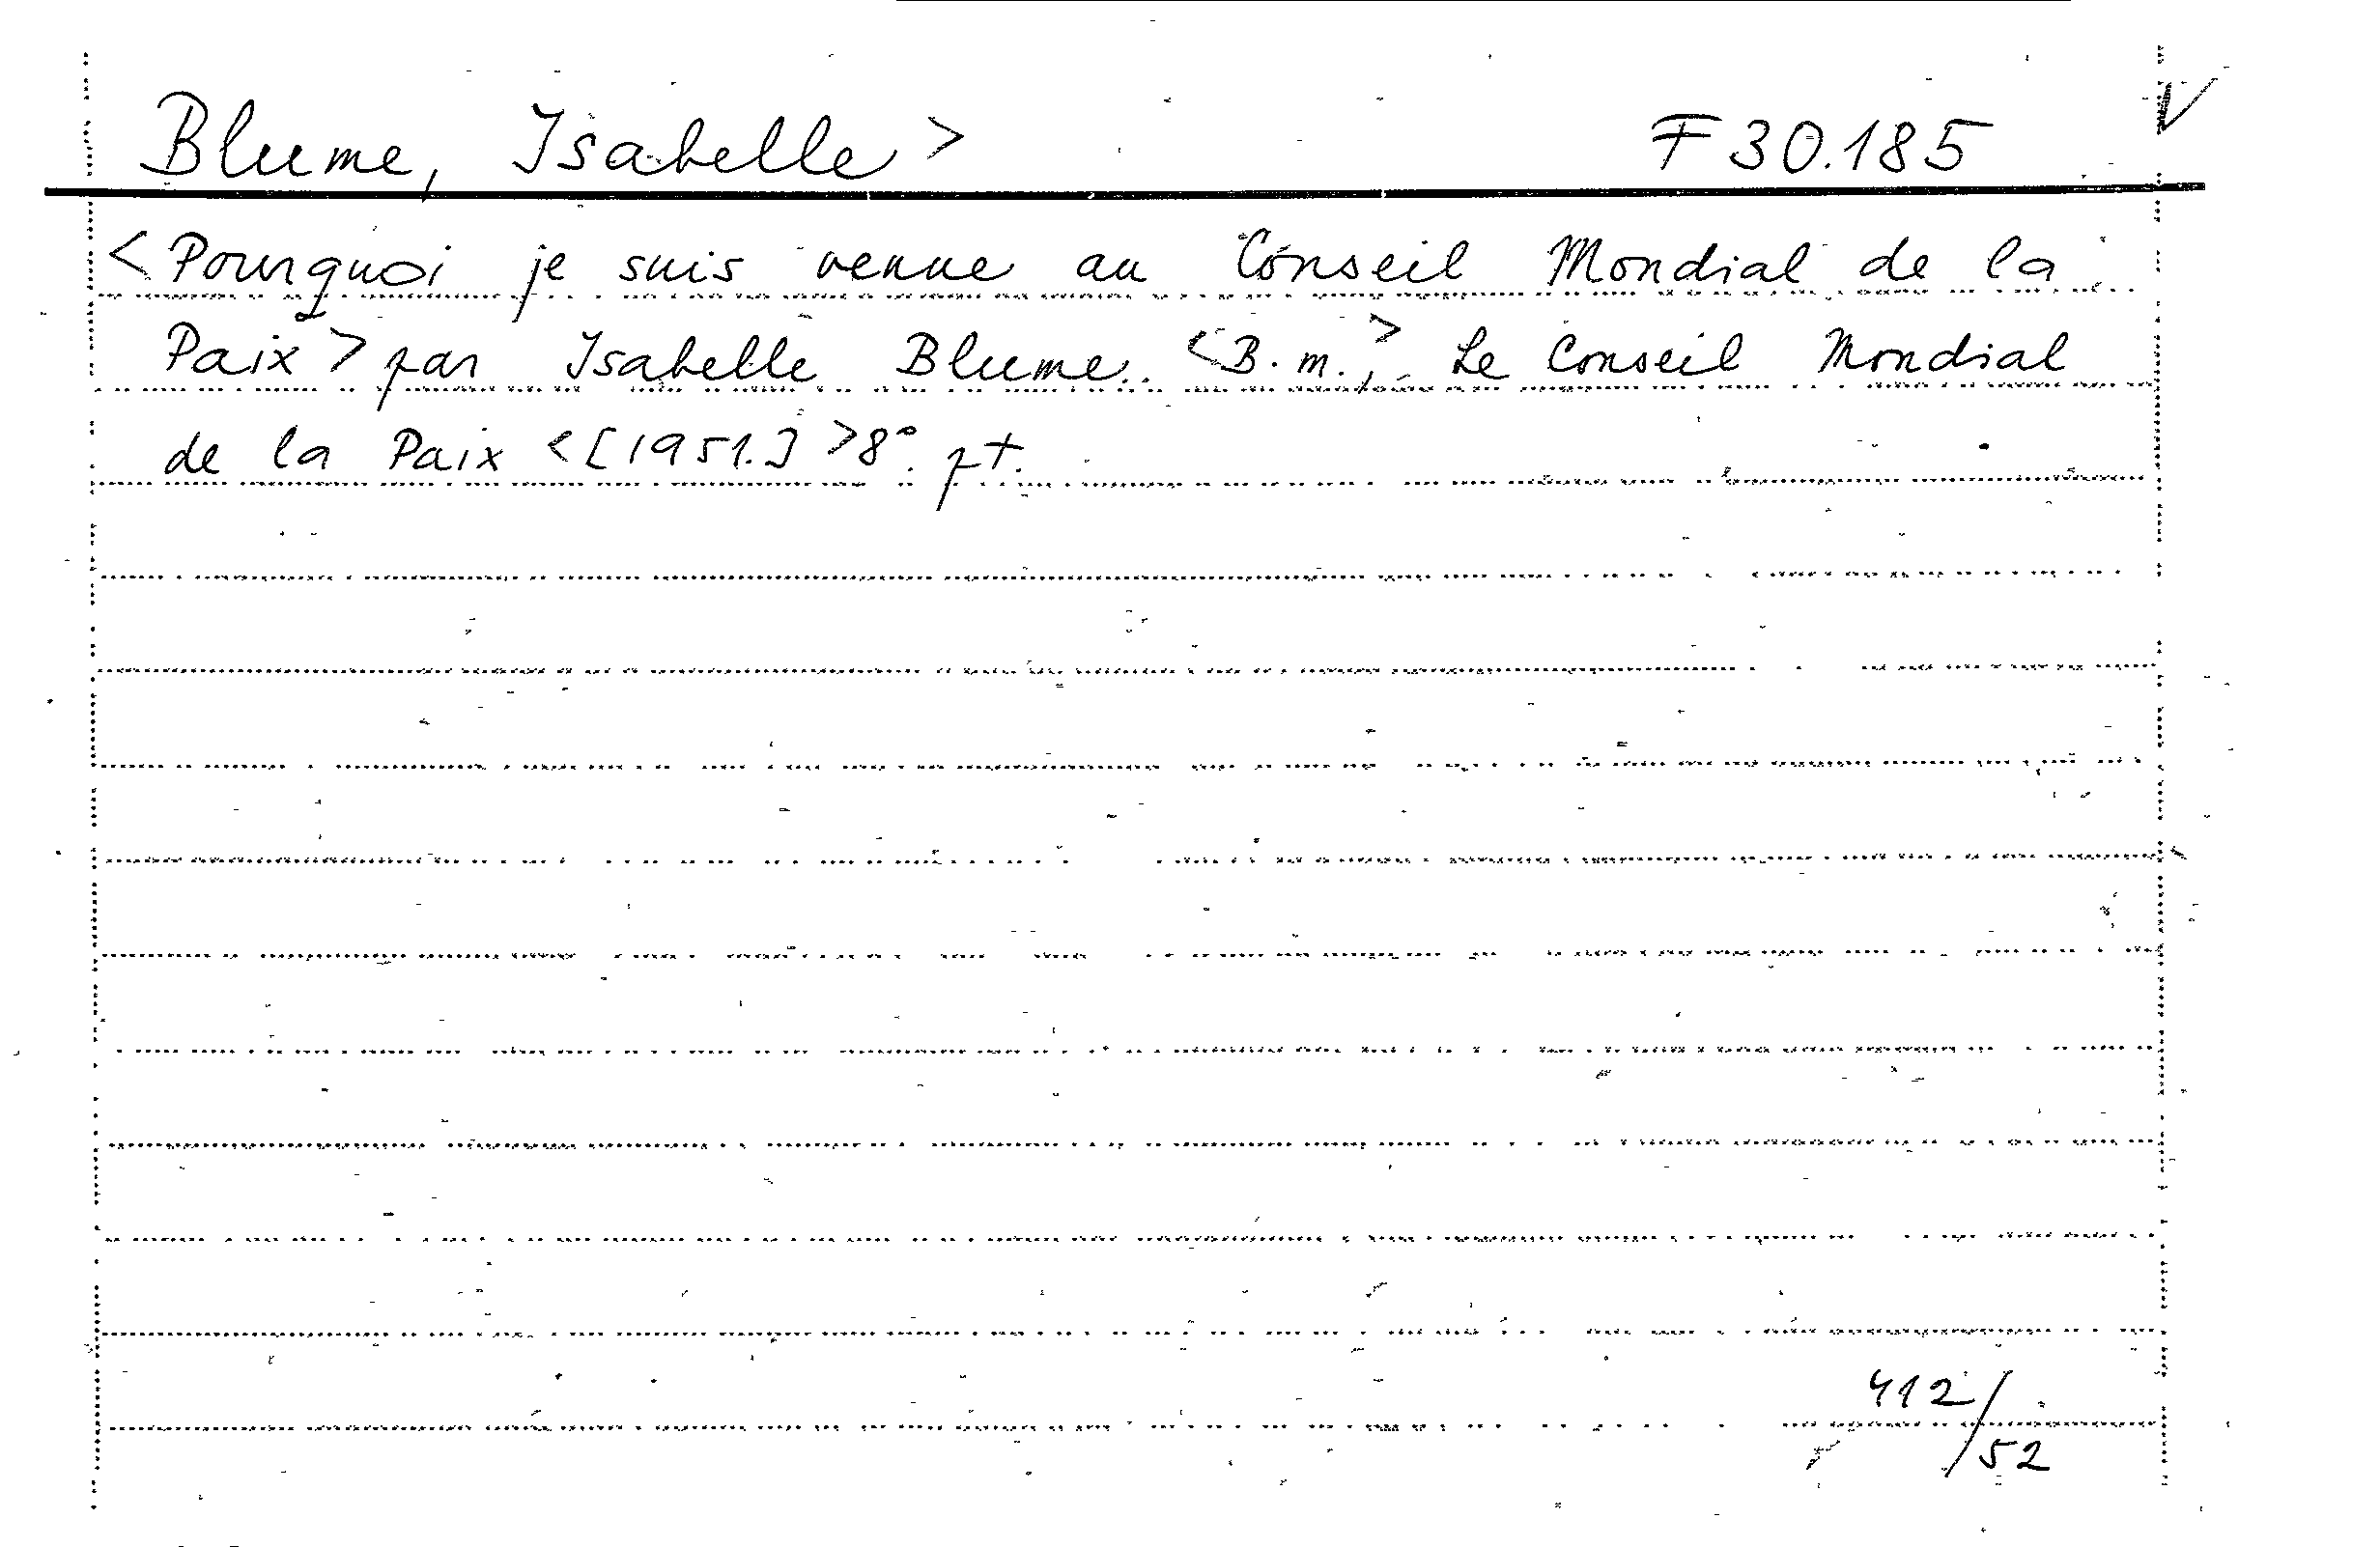 Blume, Isabelle > F 30.185 V
< Pourquoi je suis venue au Conseil Mondial de la
Paix > par Isabelle Blume. <B. m.,> Le Conseil Mondial
de la Paix < [1951.] > 8°. pt.
412/
52